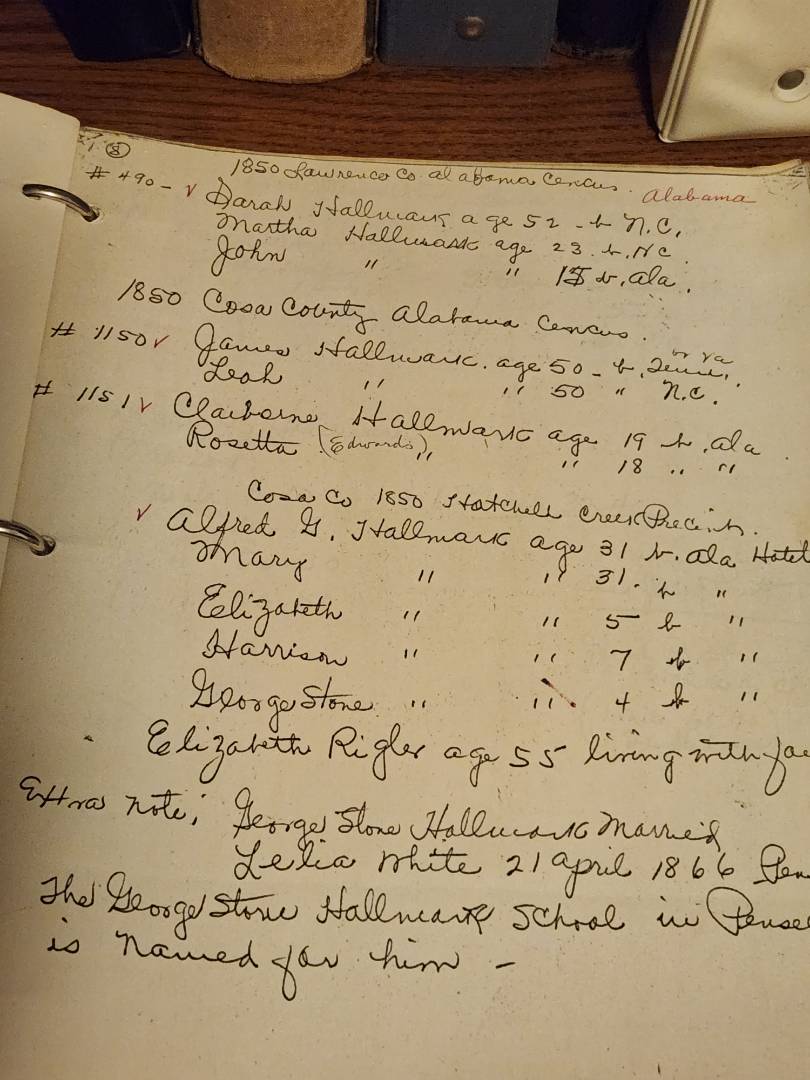 (8)
1850 Lawrence Co. alabama Census. Alabama
# 490 - v Sarah Hallmark age 52 - b N.C.
Martha Hallmark age 23. b. NC.
John " " 15 b. ala.
1850 Cosa County alabama Census.
or Va
# 1150 v James Hallmark. age 50 - b. Tenn.
Leah " " 50 " N.C.
# 1151 v Claiborne Hallmark age 19 b. ala.
Rosetta (Edwards) " " 18 " "
Cosa Co 1850 Hatchell Creek Precinth.
v Alfred G. Hallmark age 31 b. ala Hotel
Mary " " 31. b "
Elizabeth " " 5 b "
Harrison " " 7 b "
George Stone " " 4 b "
Elizabeth Rigler age 55 living with fa
Extra note; George Stone Hallmark Married
Lelia White 21 april 1866 Pen
The George Stone Hallmark School in Pense
is named for him -